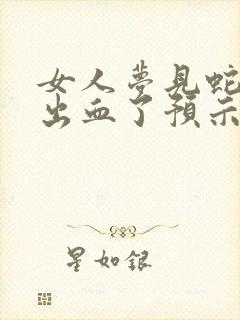 女人夢見蛇
出血了預示
星如銀